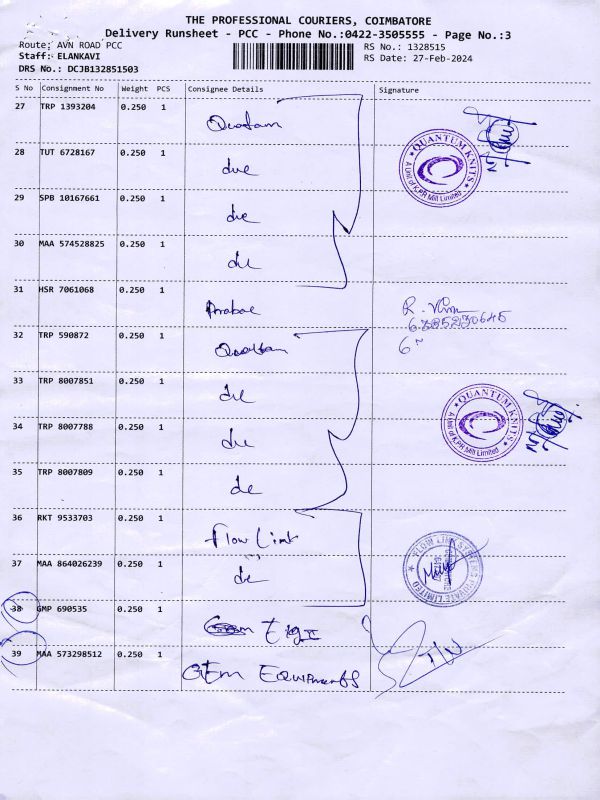 THE PROFESSIONAL COURIERS, COIMBATORE
Delivery Runsheet - PCC - Phone No.:0422-3505555 - Page No.:3
Route: AVN ROAD PCC RS No.: 1328515
Staff: ELANKAVI RS Date: 27-Feb-2024
DRS No.: DCJB132851503
S No Consignment No Weight PCS Consignee Details Signature
27 TRP 1393204 0.250 1
QUANTUM KNITS
A Unit of K.P.R Mill Limited
28 TUT 6728167 0.250 1
29 SPB 10167661 0.250 1
30 MAA 574528825 0.250 1
31 HSR 7061068 0.250 1
32 TRP 590872 0.250 1
33 TRP 8007851 0.250 1
QUANTUM KNITS
A Unit of K.P.R Mill Limited
34 TRP 8007788 0.250 1
35 TRP 8007809 0.250 1
36 RKT 9533703 0.250 1 Flow Link
37 MAA 864026239 0.250 1
38 GMP 690535 0.250 1
39 MAA 573298512 0.250 1 GEm EQUIPmentS